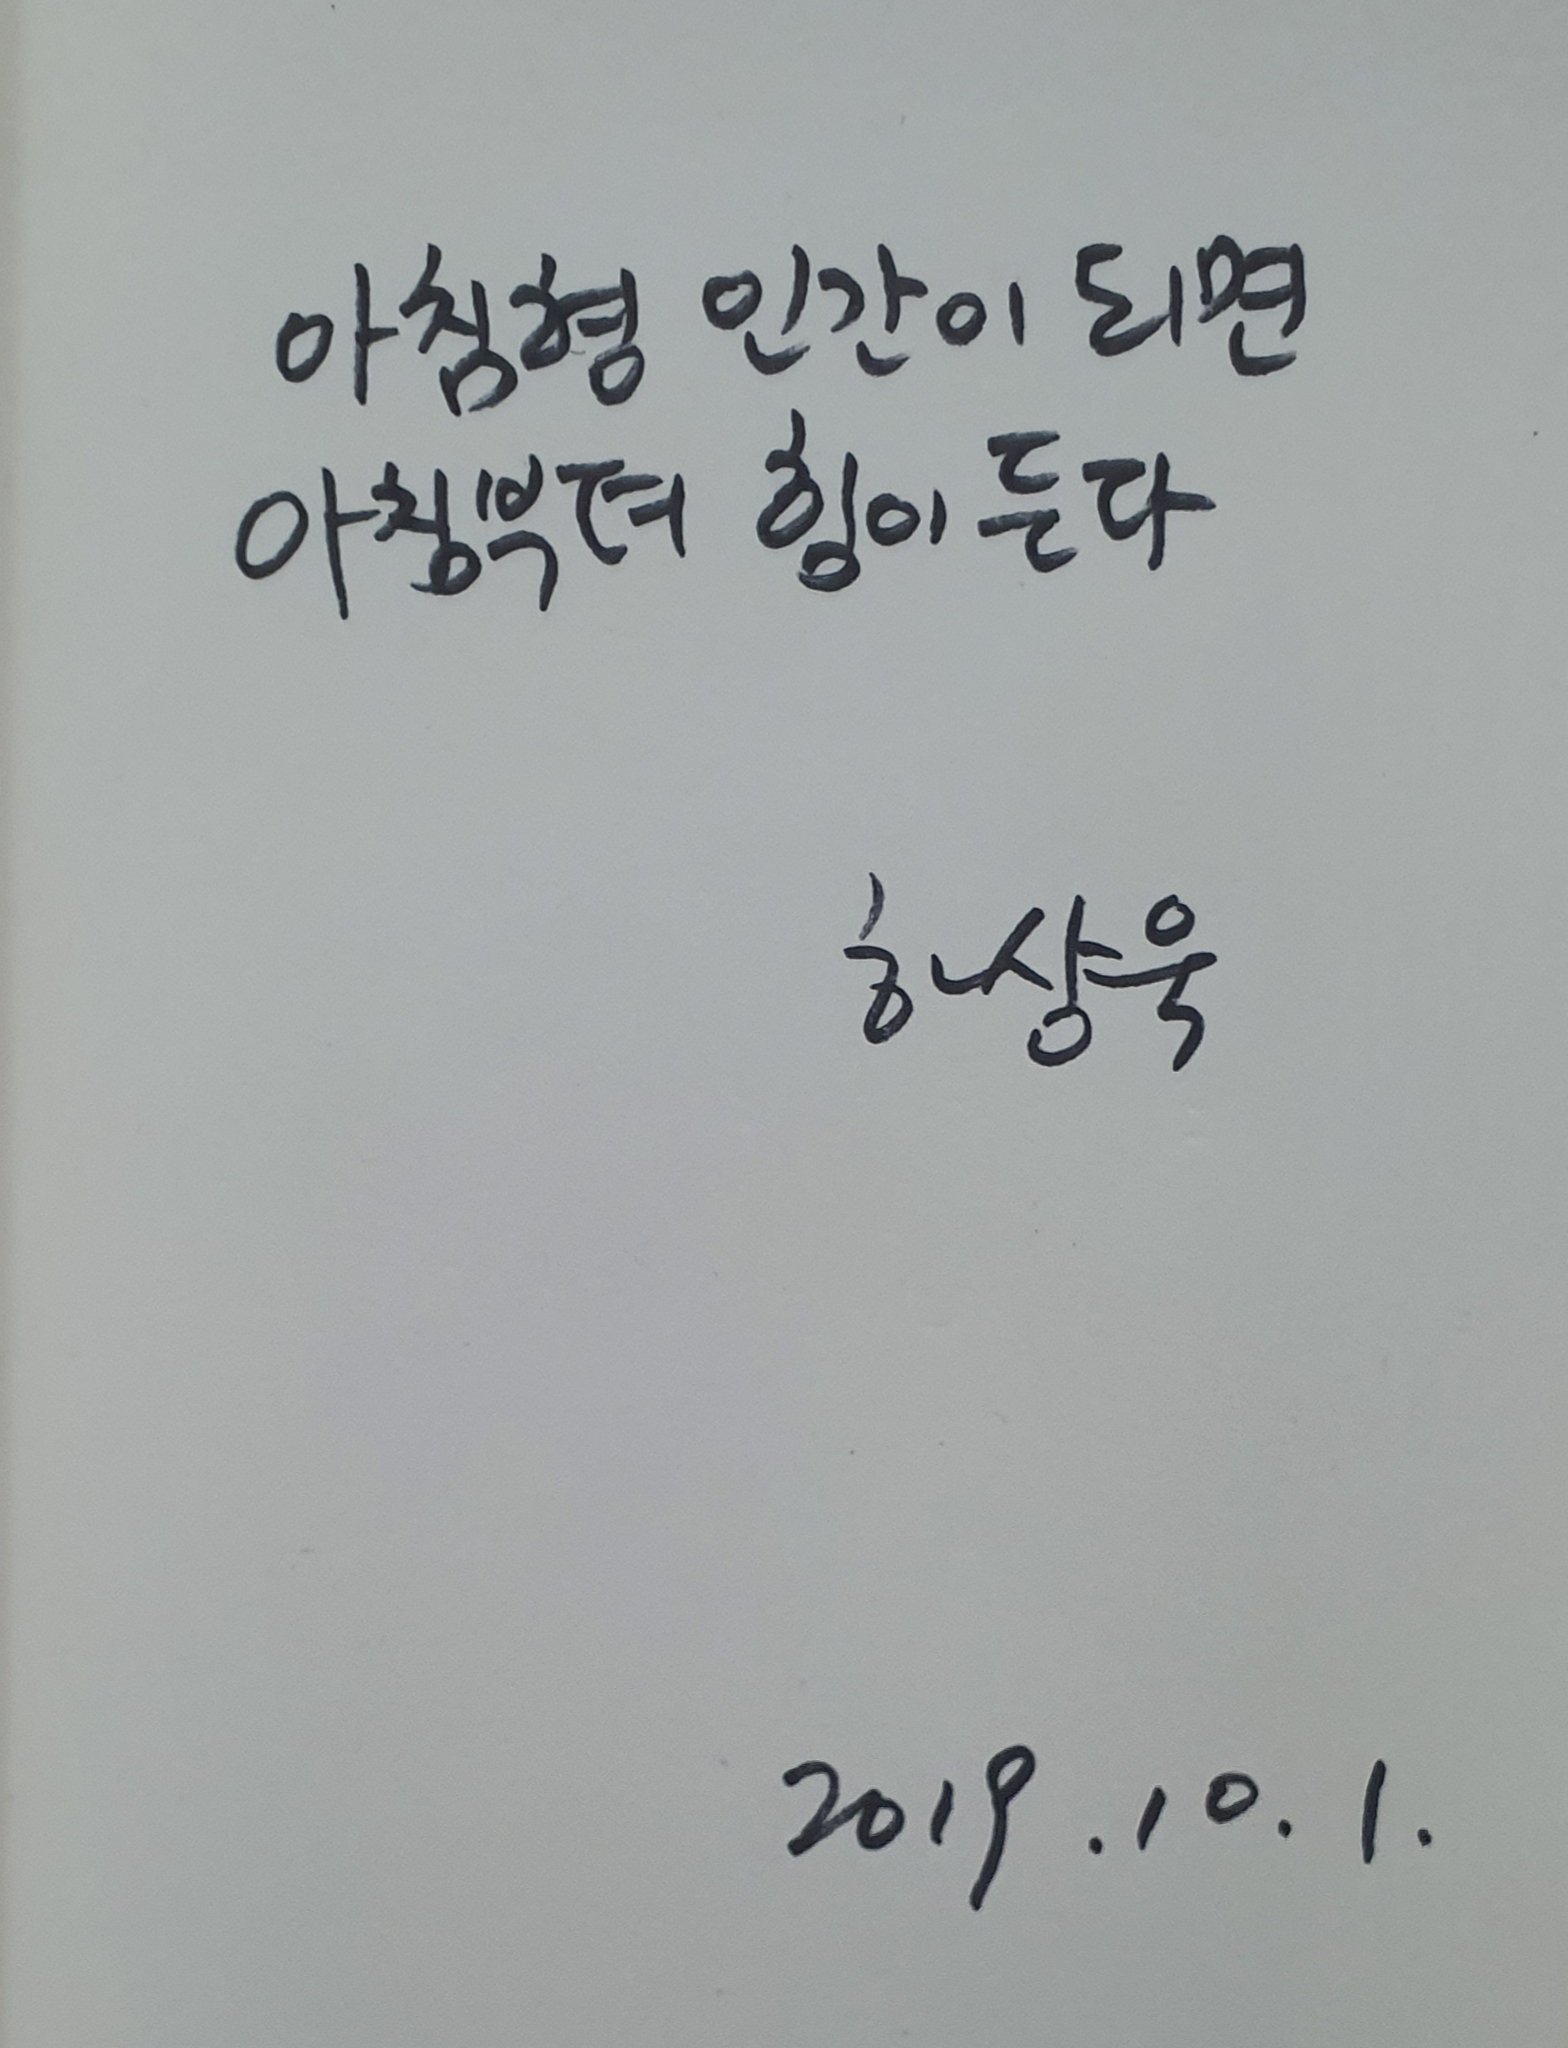 아침형 인간이 되면
아침부터 힘이 든다
하상욱
2019.10.1.